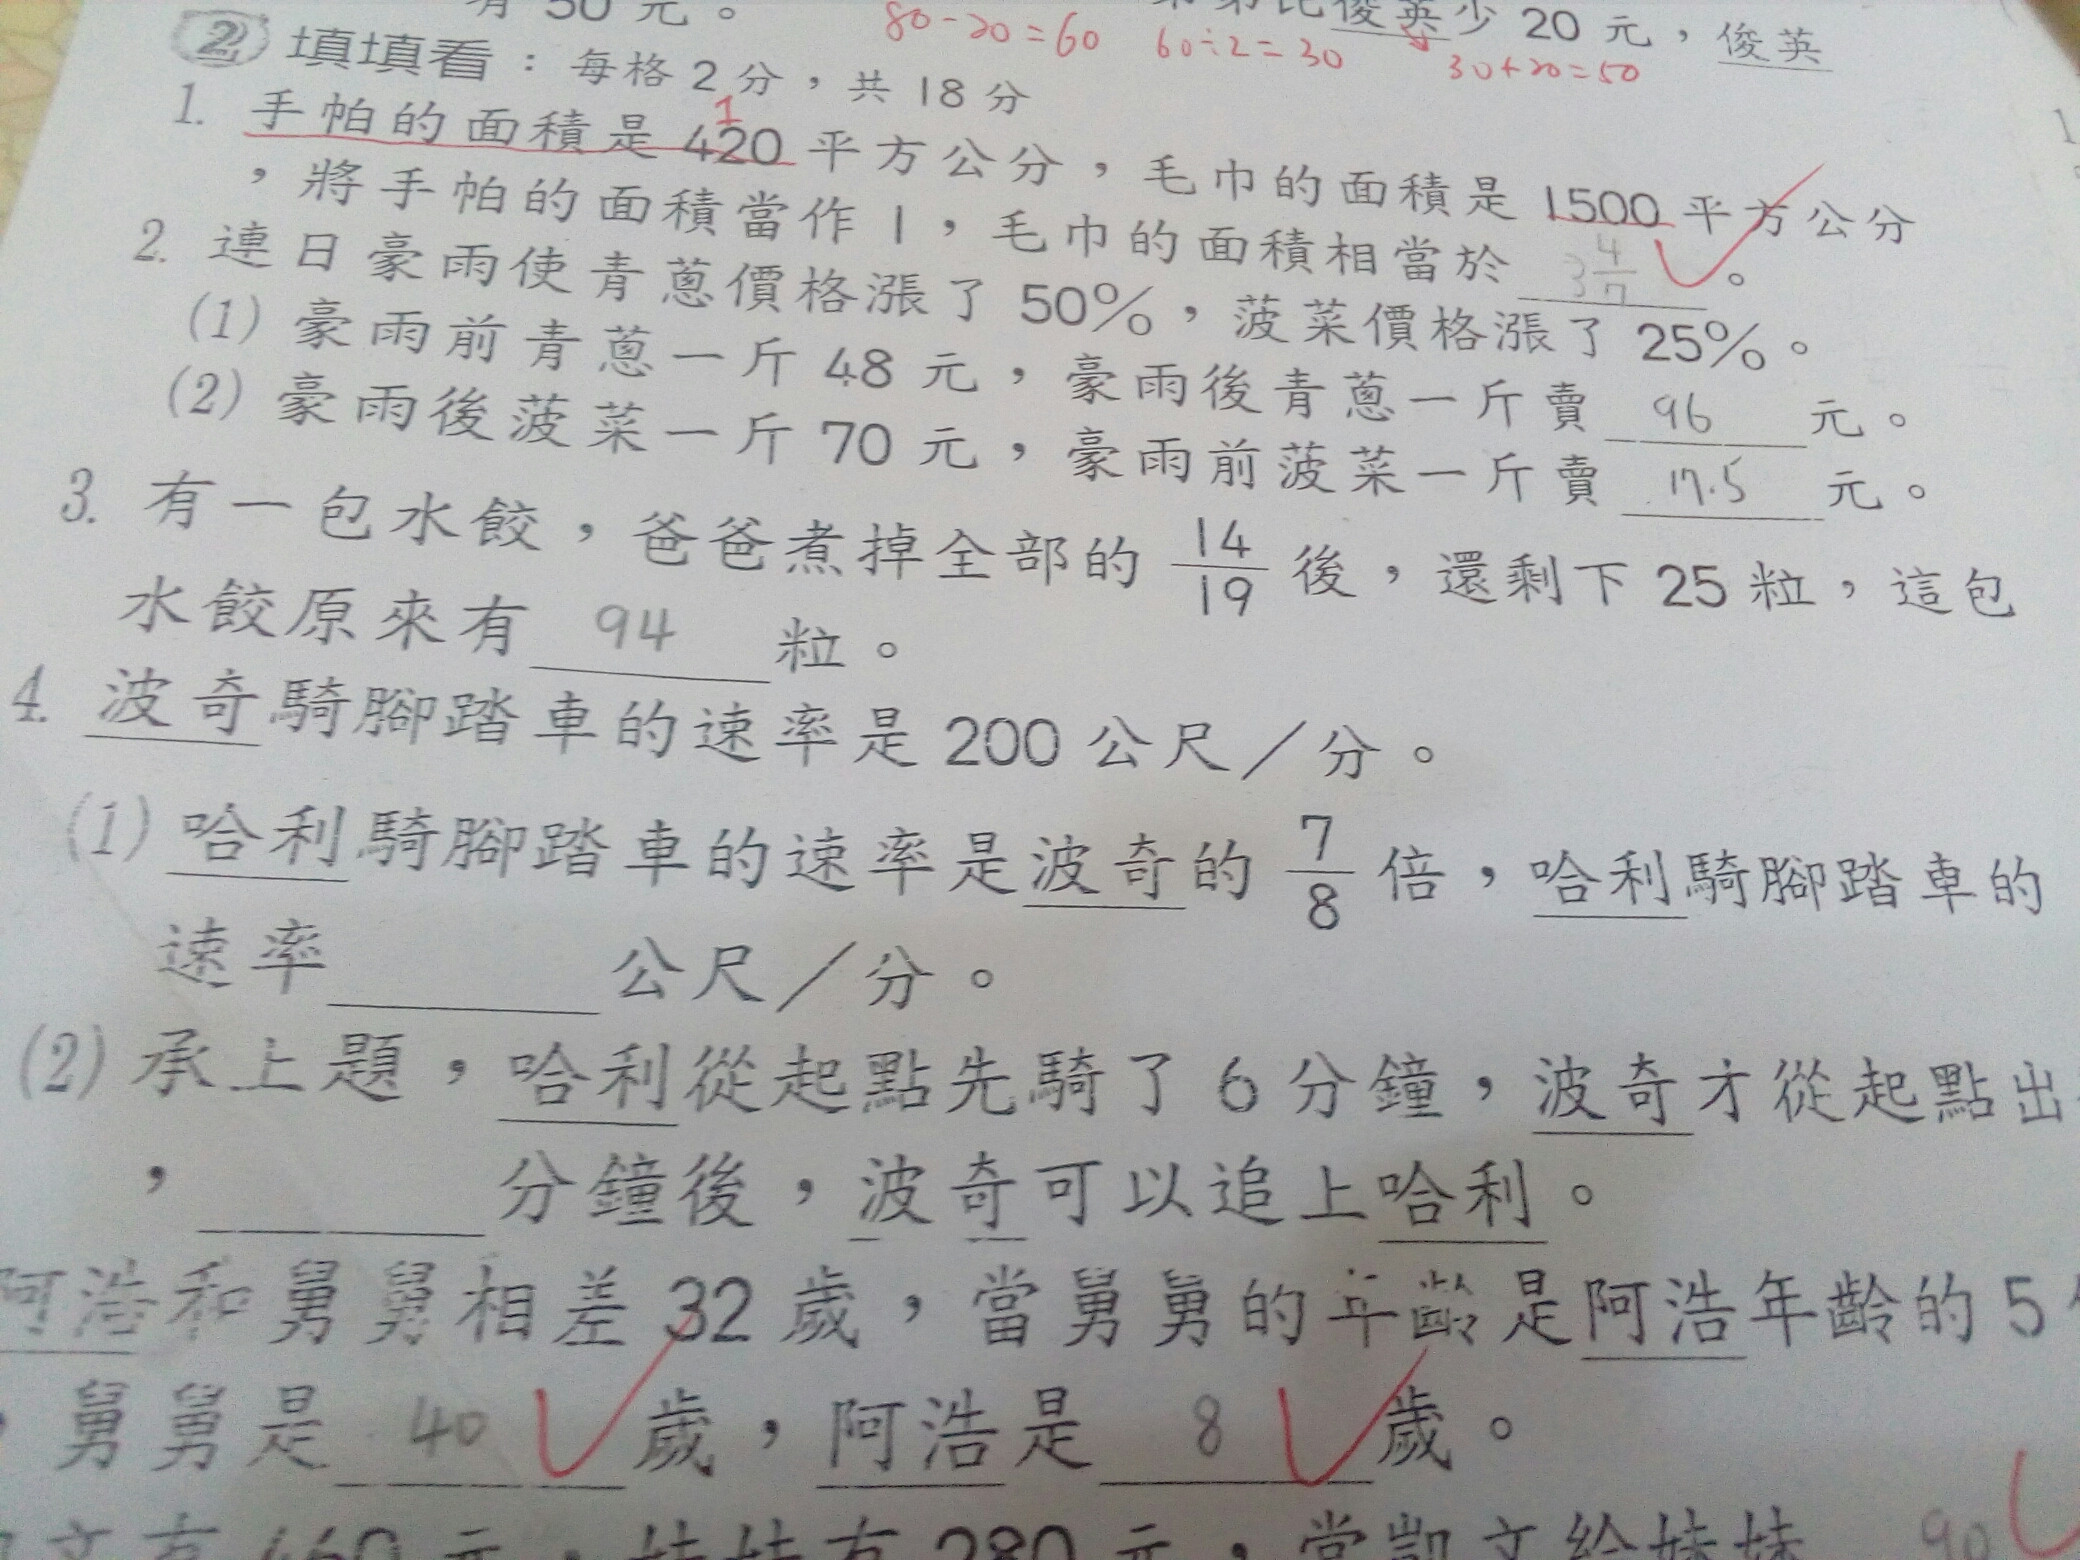 有 50 元。
80-20=60 60÷2=30 30+20=50
比俊英少 20 元，俊英
② 填填看：每格 2 分，共 18 分
1
1. 手帕的面積是 420 平方公分，毛巾的面積是 1500 平方公分
，將手帕的面積當作 1，毛巾的面積相當於 3 4/7 。
2. 連日豪雨使青蔥價格漲了 50%，菠菜價格漲了 25%。
(1) 豪雨前青蔥一斤 48 元，豪雨後青蔥一斤賣 96 元。
(2) 豪雨後菠菜一斤 70 元，豪雨前菠菜一斤賣 17.5 元。
3. 有一包水餃，爸爸煮掉全部的 14/19 後，還剩下 25 粒，這包
水餃原來有 94 粒。
4. 波奇騎腳踏車的速率是 200 公尺／分。
(1) 哈利騎腳踏車的速率是波奇的 7/8 倍，哈利騎腳踏車的
速率 公尺／分。
(2) 承上題，哈利從起點先騎了 6 分鐘，波奇才從起點出
， 分鐘後，波奇可以追上哈利。
阿浩和舅舅相差 32 歲，當舅舅的年齡是阿浩年齡的 5
，舅舅是 40 歲，阿浩是 8 歲。
文有 460 元，妹妹有 280 元，當凱文給妹妹 90